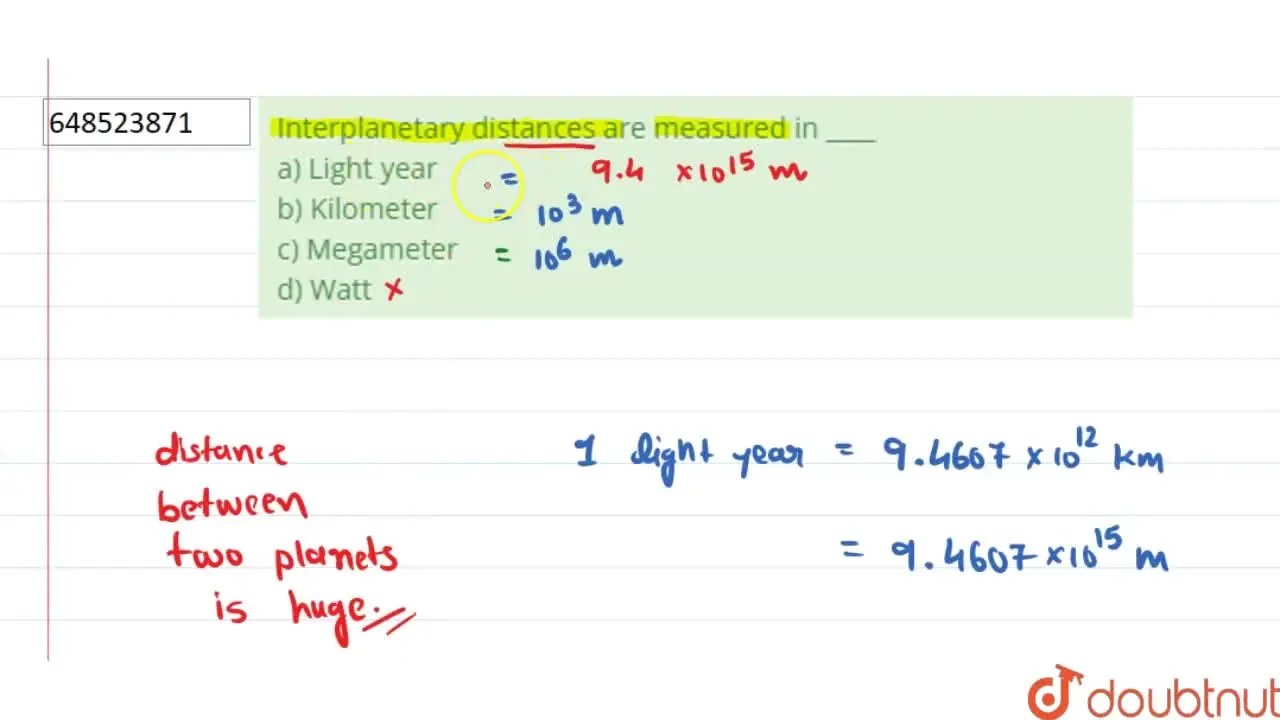 648523871
Interplanetary distances are measured in ____
a) Light year = 9.4 ×10¹⁵ m
b) Kilometer = 10³ m
c) Megameter = 10⁶ m
d) Watt ×
distance
between
two planets
is huge.
1 light year = 9.4607 ×10¹² km
= 9.4607 ×10¹⁵ m
doubtnut